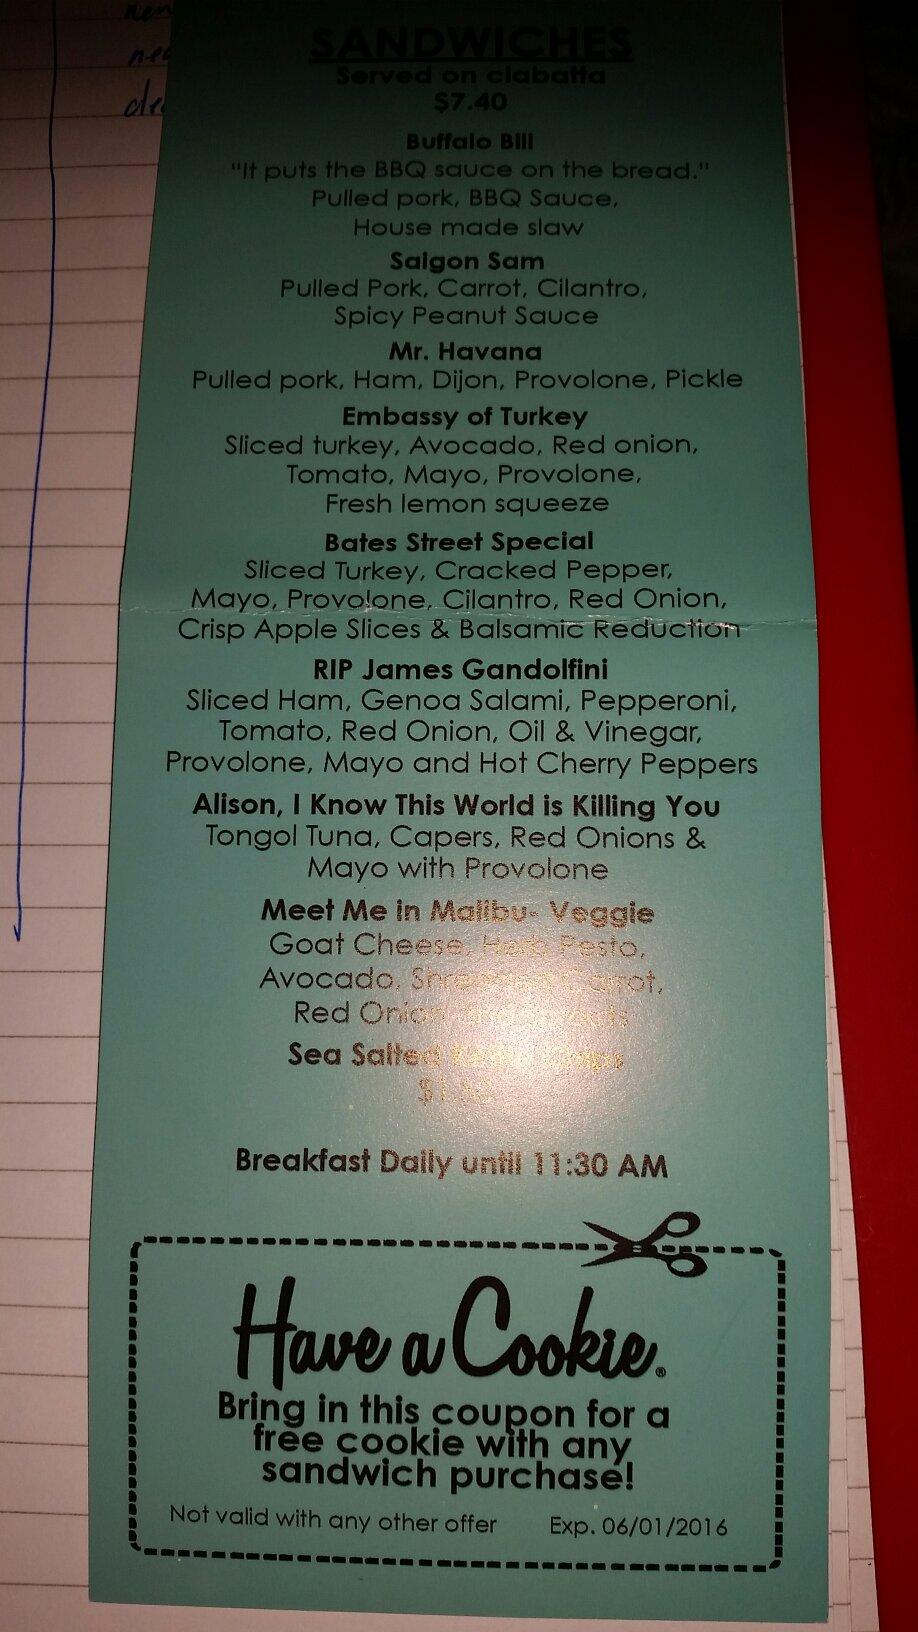 SANDWICHES
Served on ciabatta
$7.40
Buffalo Bill
"It puts the BBQ sauce on the bread."
Pulled pork, BBQ Sauce,
House made slaw
Saigon Sam
Pulled Pork, Carrot, Cilantro,
Spicy Peanut Sauce
Mr. Havana
Pulled pork, Ham, Dijon, Provolone, Pickle
Embassy of Turkey
Sliced turkey, Avocado, Red onion,
Tomato, Mayo, Provolone,
Fresh lemon squeeze
Bates Street Special
Sliced Turkey, Cracked Pepper,
Mayo, Provolone, Cilantro, Red Onion,
Crisp Apple Slices & Balsamic Reduction
RIP James Gandolfini
Sliced Ham, Genoa Salami, Pepperoni,
Tomato, Red Onion, Oil & Vinegar,
Provolone, Mayo and Hot Cherry Peppers
Alison, I Know This World is Killing You
Tongol Tuna, Capers, Red Onions &
Mayo with Provolone
Meet Me in Malibu- Veggie
Goat Cheese, Herb Pesto,
Avocado, Shredded Carrot,
Red Onion
Sea Salted
Breakfast Daily until 11:30 AM
Have a Cookie®
Bring in this coupon for a
free cookie with any
sandwich purchase!
Not valid with any other offer Exp. 06/01/2016